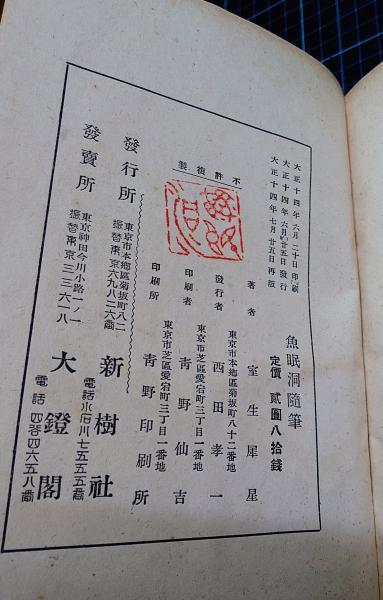 魚眠洞隨筆
定價 貳圓八拾錢
大正十四年六月二十日印刷
大正十四年六月廿五日發行
大正十四年七月廿五日再版
不許複製
著者 室生犀星
東京市本鄉區菊坂町八十二番地
發行者 西田孝一
東京市芝區愛宕町三丁目一番地
印刷者 青野仙吉
東京市芝區愛宕町三丁目一番地
印刷所 青野印刷所
發行所
東京市本鄉區菊坂町八二
振替東京六九八二六番
新樹社
電話小石川七五五五番
發賣所
東京神田今川小路一ノ一
振替東京三三六一八
大鐙閣
電話四谷四六五八番